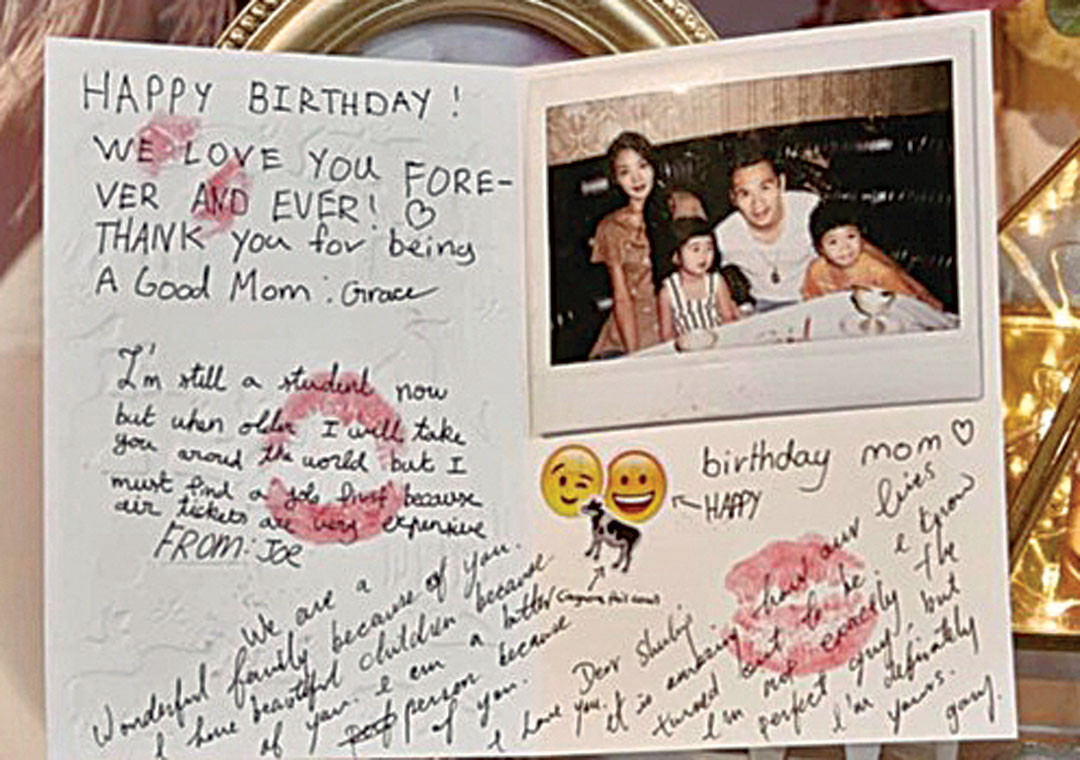 HAPPY BIRTHDAY !
WE LOVE YOU FORE-
VER AND EVER! ♡
THANK you for being
A Good Mom : Grace
I'm still a student now
but when older I will take
you around the world but I
must find a job first because
air tickets are very expensive
FROM: JOE
We are a
Wonderful family because of you.
I have beautiful children because
of you. I am a better
person because
of you.
birthday mom ♡
HAPPY
this cow
Dear
I love you. It is amazing how our lives
turned out to be. I know
I'm not exactly the
perfect guy, but
I'm definately
yours.
gary.